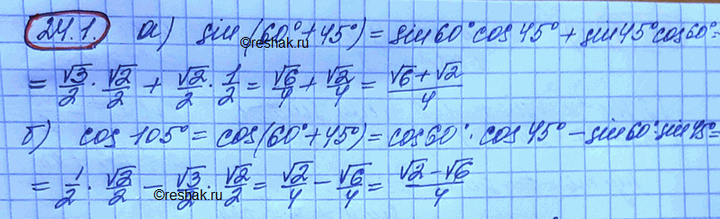 24.1. а) sin(60°+45°) = sin60°cos45° + sin45°cos60° =
©reshak.ru
= √3/2 · √2/2 + √2/2 · 1/2 = √6/4 + √2/4 = (√6+√2)/4
б) cos 105° = cos(60°+45°) = cos60° · cos45° − sin60° · sin45° =
= 1/2 · √2/2 − √3/2 · √2/2 = √2/4 − √6/4 = (√2−√6)/4
©reshak.ru